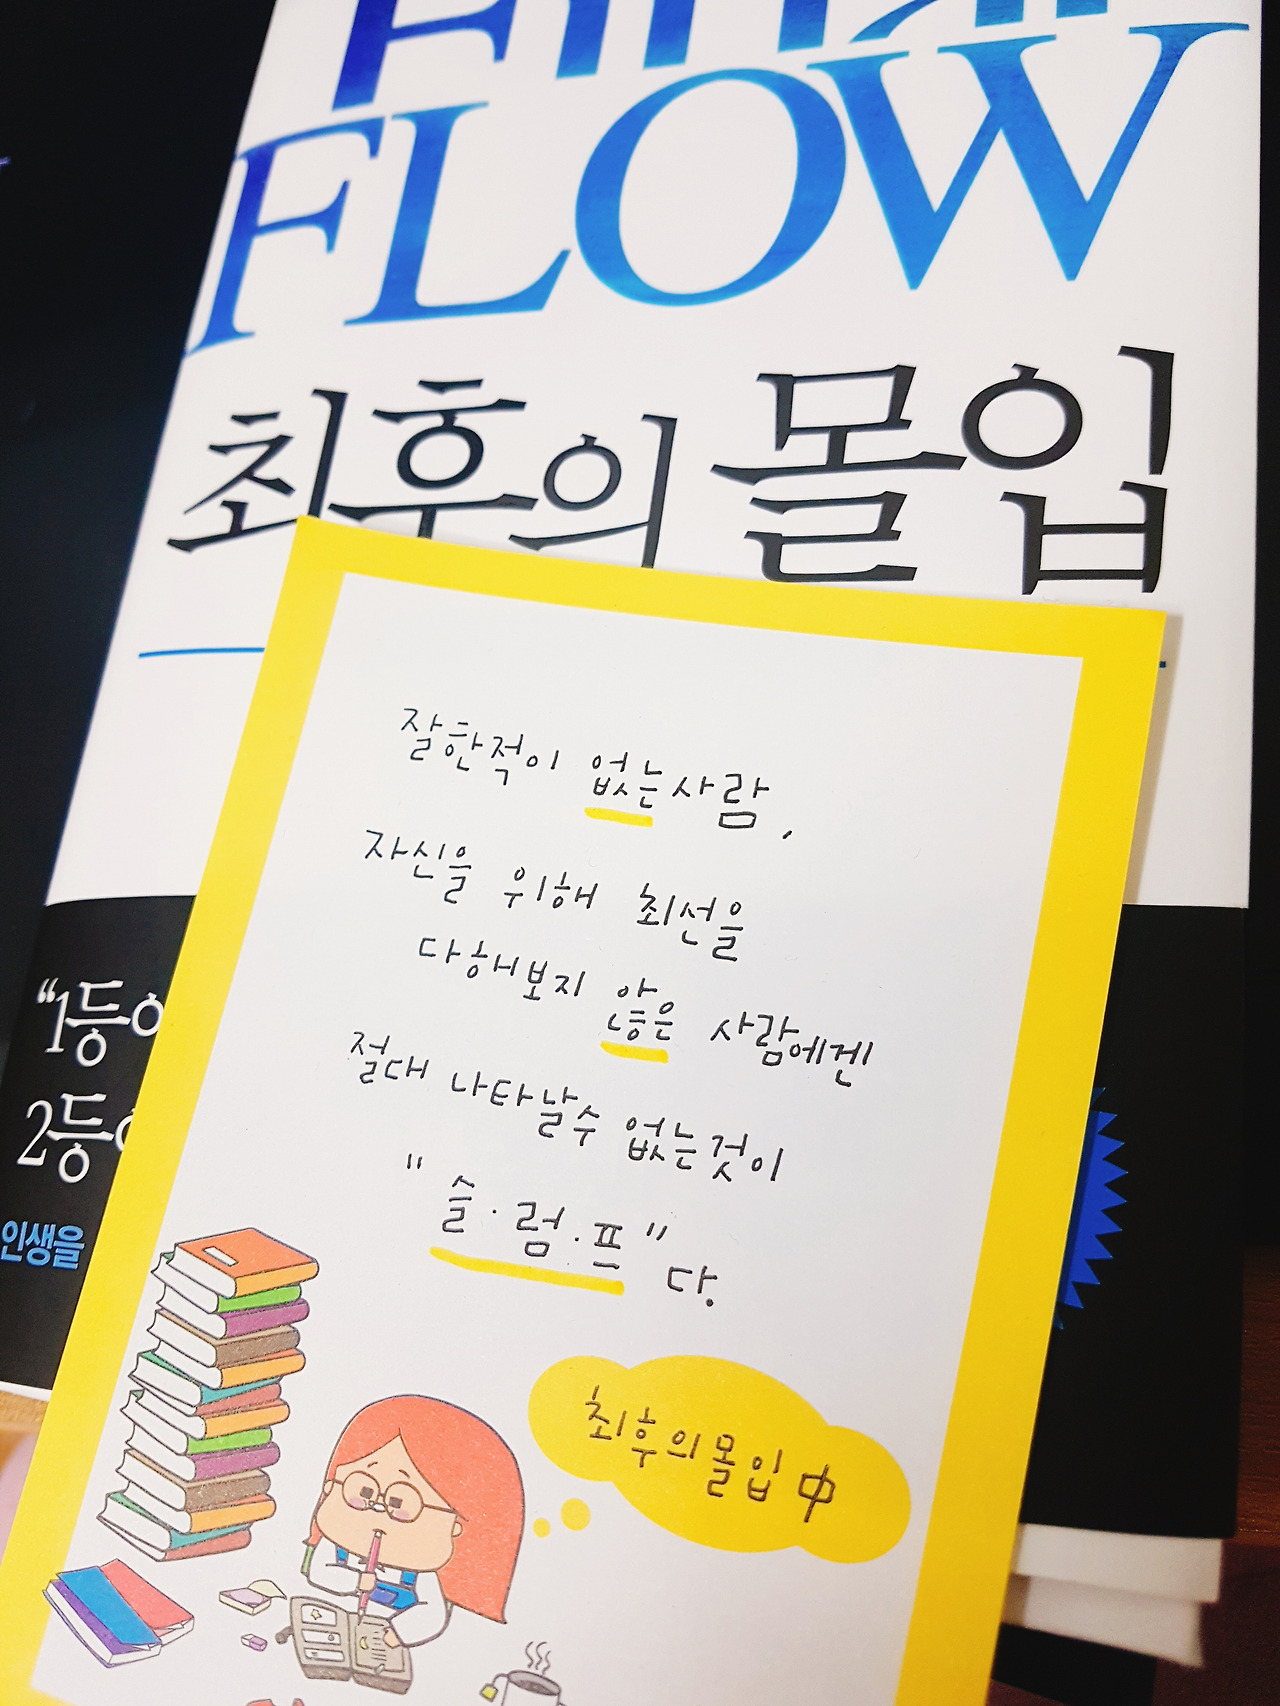 Final
FLOW
최후의 몰입
잘한적이 없는사람,
자신을 위해 최선을
다해보지 않은 사람에겐
절대 나타날수 없는것이
"슬·럼·프"다.
최후의몰입 中
"1등이
2등이
인생을